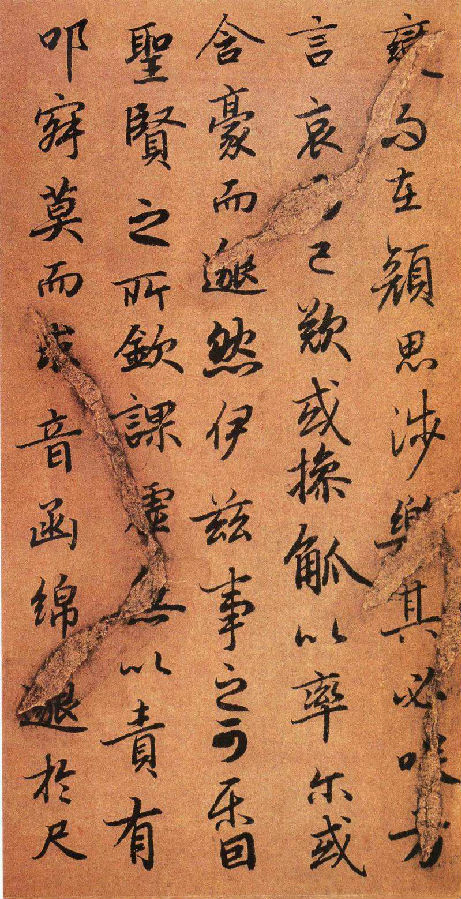 變而在顔思涉樂其必咲方
言哀而已歎或操觚以率尔或
含豪而邈然伊兹事之可樂固
聖賢之所欽課虛無以責有
叩寂莫而求音函綿邈於尺